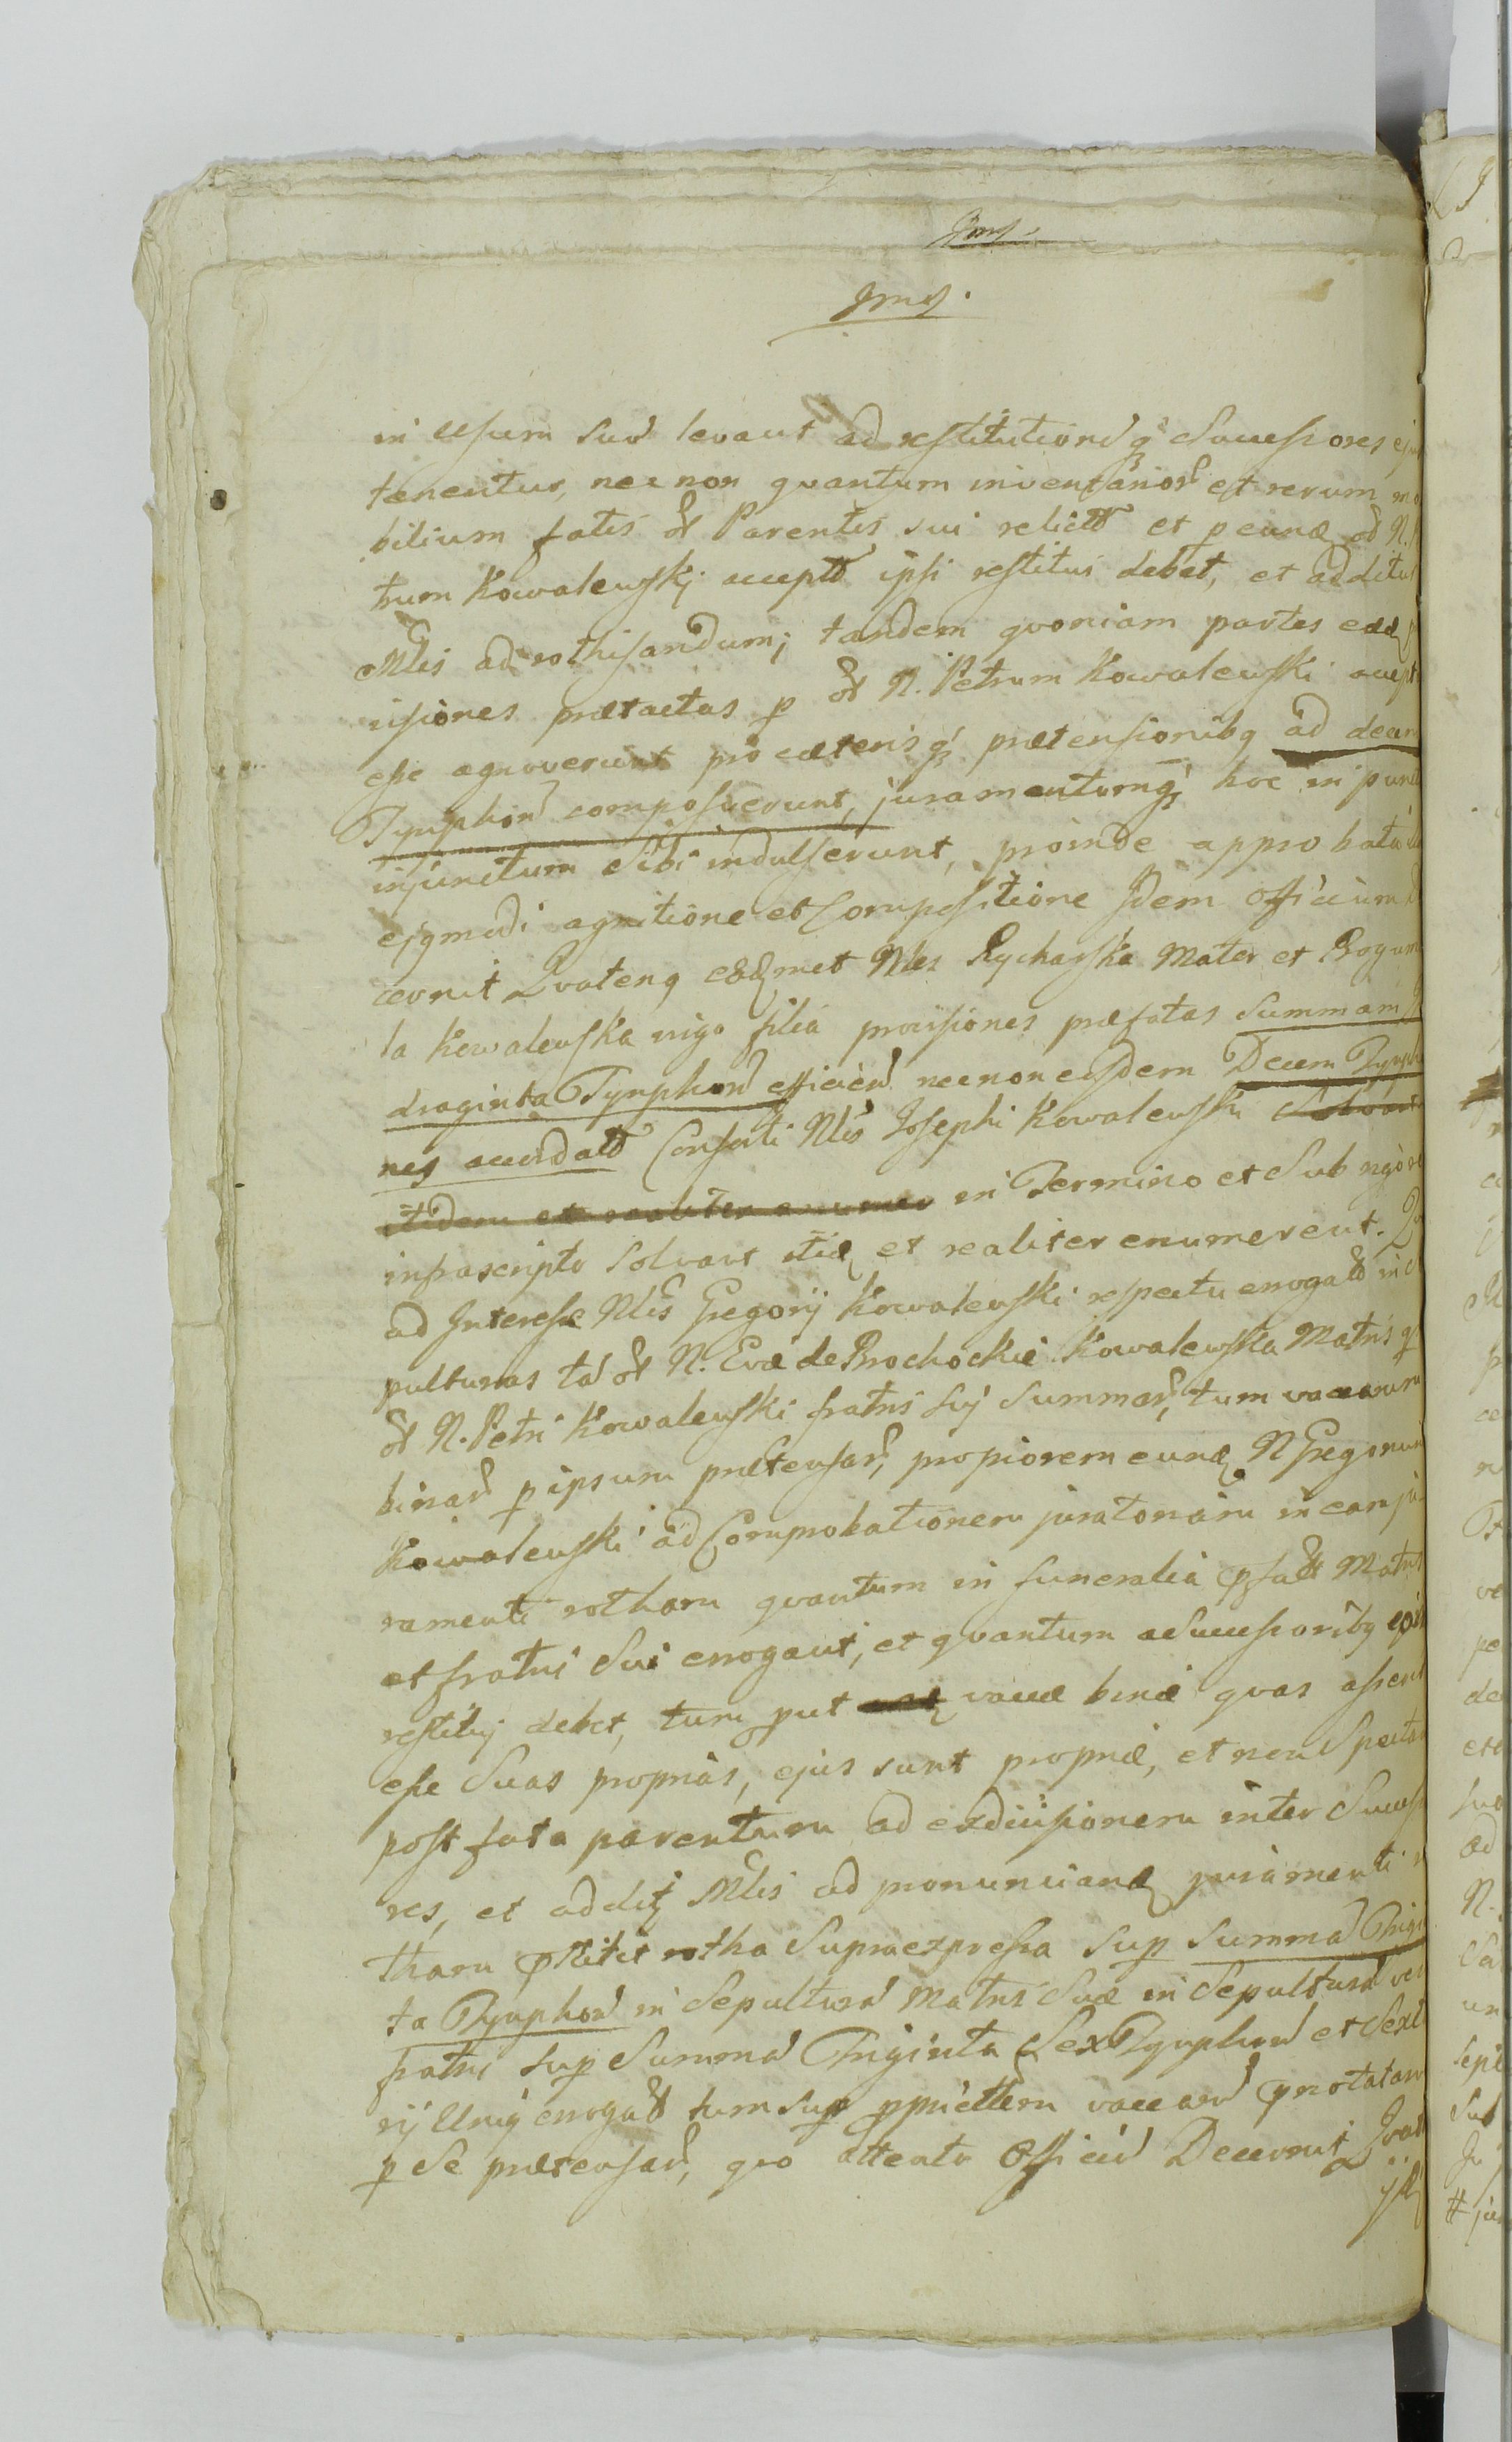 in Usum suū levavit ad restitutionēq; Successores ejus
tenentur, nec non quantum inventarior et rerum mo
bilium fatis olt Parentis sui relictt et p eunđ olt N. Pe
trum Kowalewskj acceptt ipsi restitui debet, et additur
Mlis ad rothisandum; tandem quoniam partes eaeđ
visiones praetactas p olt N. Petrum Kowalewski accept
esse agnoverunt pro caeterisq; praetensionibq ad decem
Tynphon composuerunt, juramentumq; hoc in punct
injunctum sibi indulserunt, proinde approbata
ejqmodi agnitione et Compositione Idem Officium
cernit Qvatenq eaeđmet Nles Rycharska Mater et Bogum
la Kowalewska virgo filia provisiones praefatas Summam
draginta Tynphon efficien necnon eosdem Decem Tynph
nes accordatt Consorti Nlis Josephi Kowalewski Solvant
itidem et realiter enumer in Termino et Sub rigore
infrascripto Solvant itiđ et realiter enumerent.
ad Interesse Nlis Gregorij Kowalewski respectu erogatt in
pulturas tā olt N. Evae de Brochockie Kowalewska Matris q
olt N. Petri Kowalewski fratris suj Summar, tum vaccarum
binar p ipsum praetensar, propiorem eunđ N Gregorium
Kowalewski ad Comprobationem juratoriam in eam ju
ramenti rotham quantum in funeralia pfatt Matris
et fratris Sui erogavit, et qvantum a Successoribq
restituj debet, tum put vaccae binae quas asserit
esse Suas proprias, ejus sunt propriae, et non Spectan
post fata parentum ad exdivisionem inter Succeso
res, et additq Mlis ad pronunciand juramenti
tham pstitit rotha Supraexpressa Sup Summa Trigin
ta Tynphon in Sepultura Matris Suae in Sepultura vero
fratris sup Summa Triginta Sex Tynphon et Sext
rij Uniq erogatt tum Sup ppriettem vaccar pnotatar
p Se praetensar, quo attento Officiū Decernit Qvat